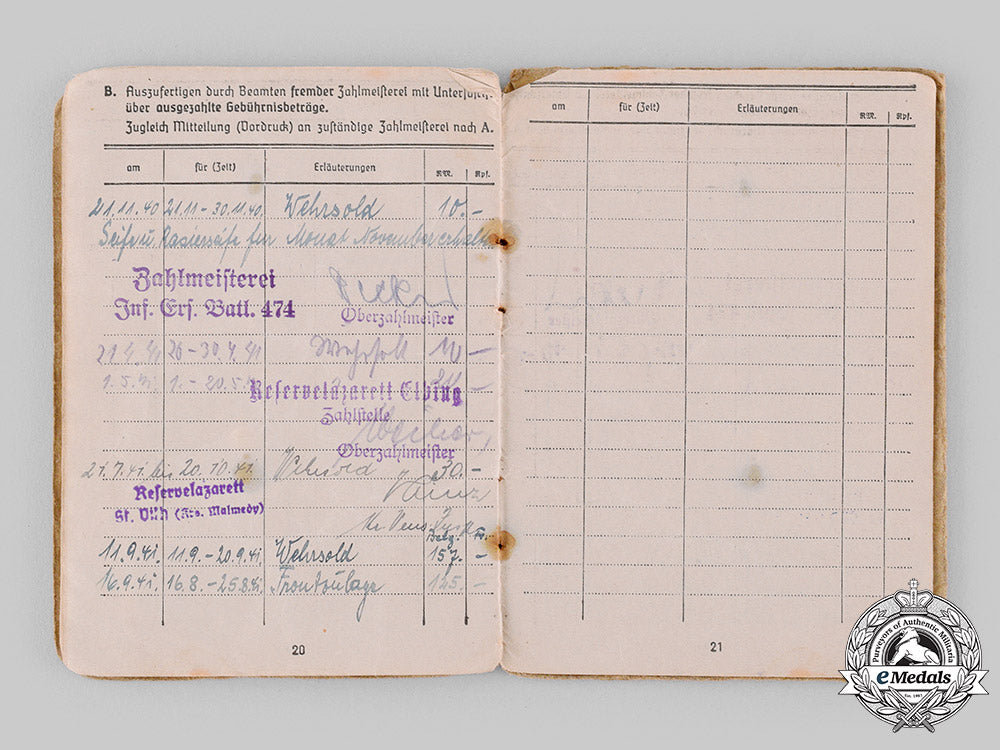 B. Auszufertigen durch Beamten fremder Zahlmeisterei mit Unterschrift
über ausgezahlte Gebührnisbeträge.
Zugleich Mitteilung (Vordruck) an zuständige Zahlmeisterei nach A.
am für (Zeit) Erläuterungen RM. Rpf.
21.11.40 21.11-30.11.40. Wehrsold 10.-
Seife u. Rasierseife für Monat November erhalten
Zahlmeisterei
Inf. Ers. Batl. 474
Oberzahlmeister
21.4.41 20-30.4.41 Wehrsold 10 -
1.5.41 1.-20.5.41 -
Reservelazarett Elbing
Zahlstelle
Oberzahlmeister
21.7.41. bis 20.10.41. Wehrsold 30.-
Reservelazarett
St. Vith (Krs. Malmedy)
Belg. Fr.
11.9.41. 11.9.-20.9.41 Wehrsold 157. -
16.9.41. 16.8.-25.8.41 Frontzulage 125. -
20
am für (Zeit) Erläuterungen RM. Rpf.
21
Purveyors of Authentic Militaria
eMedals
Est. 1967